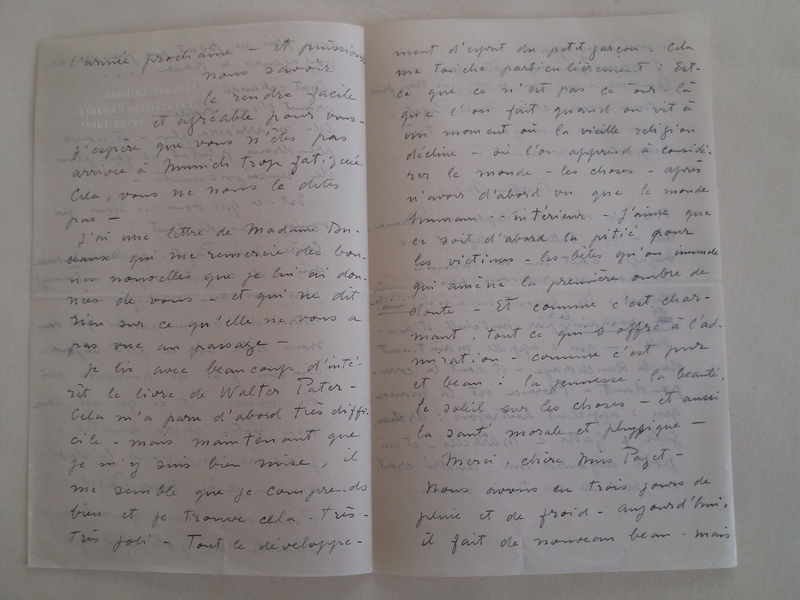 l'année prochaine - et puissions
nous savoir
le rendre facile
et agréable pour vous -
J'espère que vous n'êtes pas
arrivée à Munich trop fatiguée
Cela, vous ne nous le dites
pas -
J'ai une lettre de Madame Du-
claux qui me remercie des bon-
nes nouvelles que je lui ai don-
nées de vous - et qui ne dit
rien sur ce qu'elle ne vous a
pas vue au passage -
Je lis avec beaucoup d'inté-
rêt le livre de Walter Pater -
Cela m'a paru d'abord très diffi-
cile - mais maintenant que
je m'y suis bien mise, il
me semble que je comprends
bien et je trouve cela - très -
très joli - Tout le développe-
ment d'esprit du petit garçon. Cela
me touche particulièrement : Est-
ce que ce n'est pas ce
que l'on fait quand on vit à
un moment où la vieille religion
décline - où l'on apprend à considé-
rer le monde - les choses - après
n'avoir d'abord vu que le monde
humain - intérieur - J'aime que
ce soit d'abord la pitié pour
les victimes - les bêtes qu'on immole
qui amène la première ombre de
doute - Et comme c'est char-
mant tout ce qui s'offre à l'ad-
miration - comme c'est pur
et beau : la jeunesse, la beauté,
le soleil sur les choses - et aussi
la santé morale et physique -
Merci, chère Miss Paget -
Nous avons eu trois jours de
pluie et de froid - aujourd'hui,
il fait de nouveau beau - mais